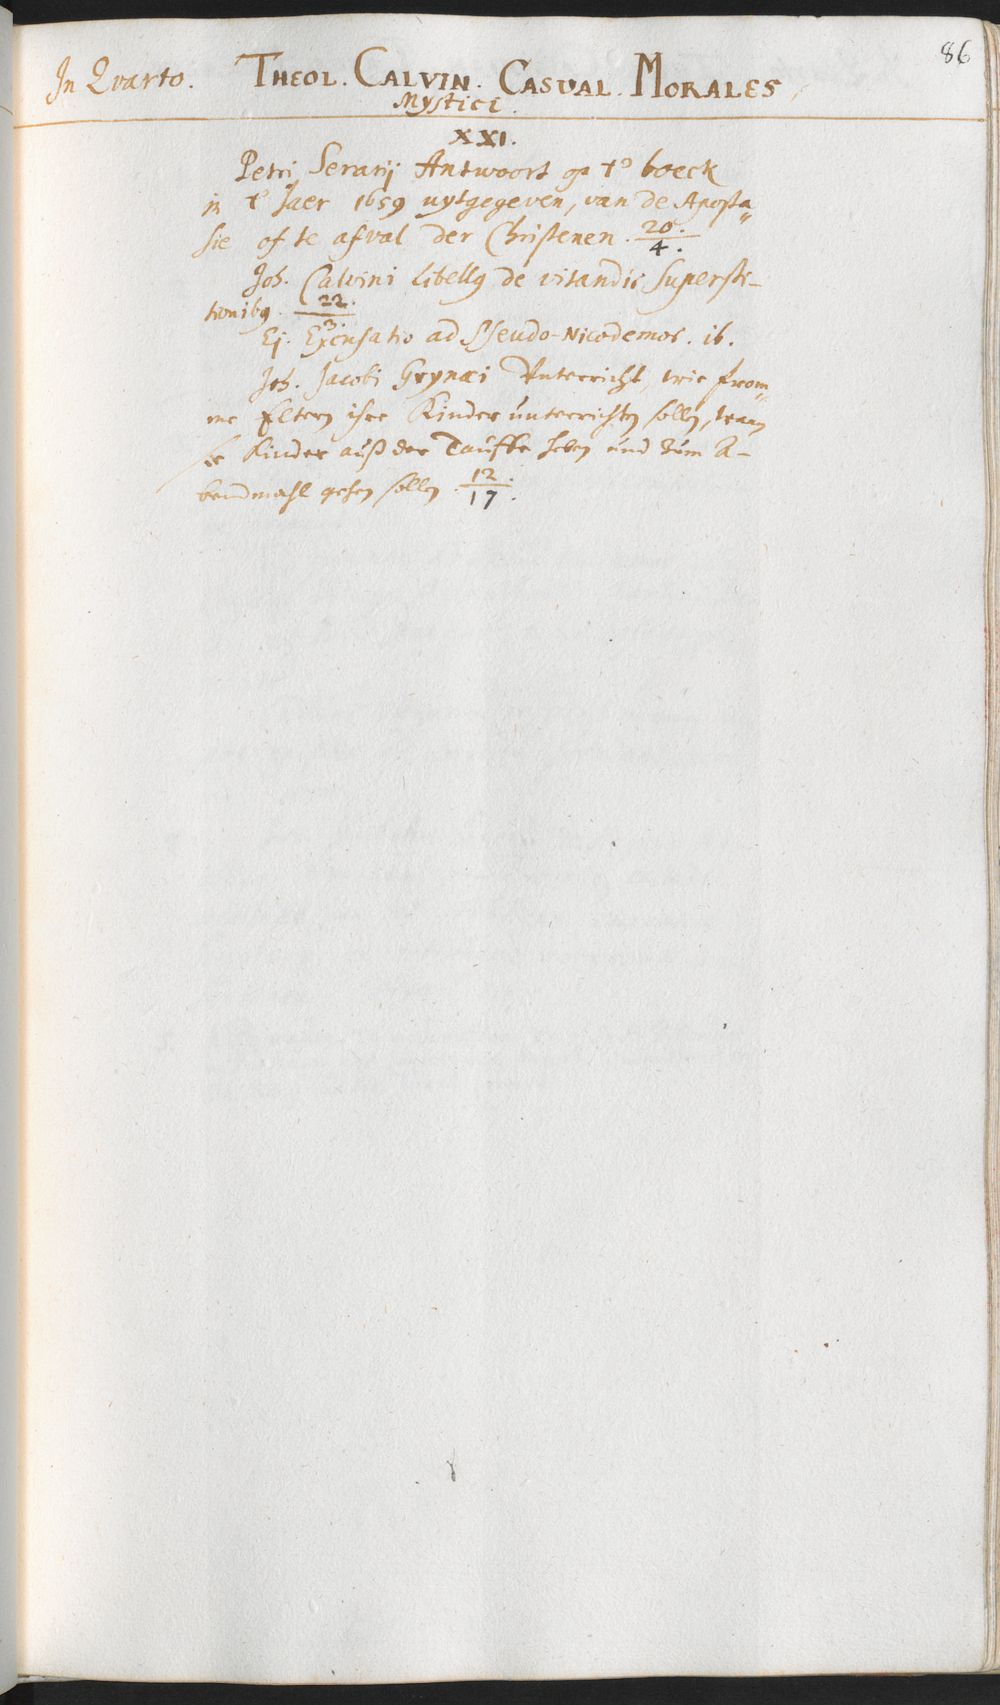 86
In Qvarto. THEOL. CALVIN. CASUAL. MORALES
Mystici.
XXI.
Petri Serarij Antwoort op t' boeck
in t' Jaer 1659 uytgegeven, van de Aposta„
sie of te afval der Christenen. 20./4.
Joh. Calvini libellq de vitandis Supersti–
tionibq. 22./3.
Ej. Excusatio ad Pseudo-Nicodemos. ib.
Joh. Jacobi Grynæi Unterricht, wie from„
me Eltern ihre Kinder unterrichten sollen, wann
sie Kinder auß der Tauffe heben und zum A–
bendmahl gehen sollen. 12./17.